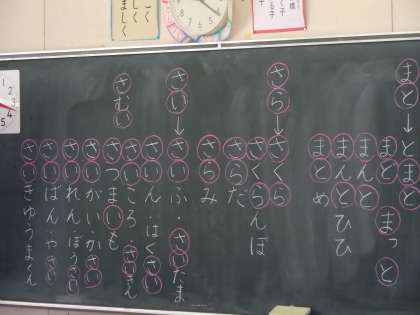 まと→とまと
まんと
まんとひひ
まとめ
さら→さくら
さくらんぼ
さらだ
さらみ
さい→さいふ・さいたま
さいん・はくさい
さいころ・さいさん
さむい
さつまいも
さいがい・かさい
さいれん・ぼうさい
さいばん・やさい
さいきゅうまくん